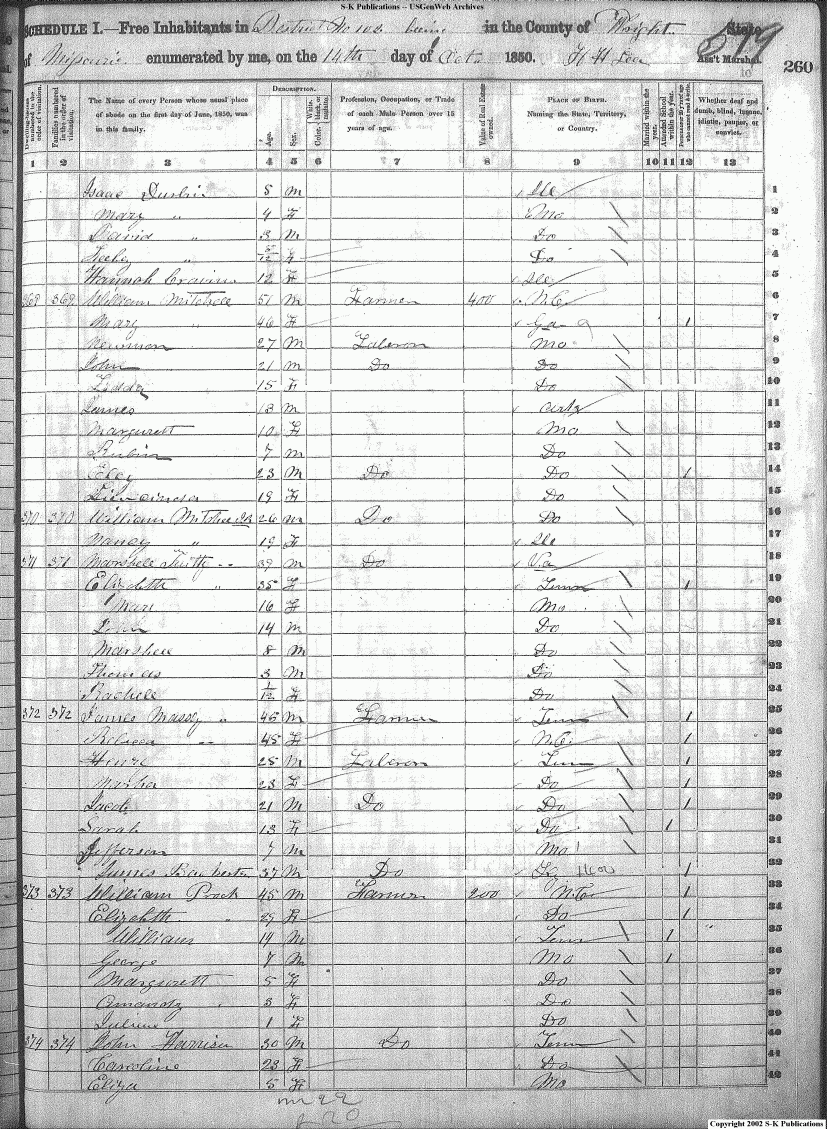 S-K Publications -- USGenWeb Archives
SCHEDULE I.—Free Inhabitants in District No 106 being in the County of Wright State
of Missouri enumerated by me, on the 14th day of Oct 1850. H H Lea Ass't Marshal.
519
260
Dwelling-houses numbered in the order of visitation.
Families numbered in the order of visitation.
The Name of every Person whose usual place of abode on the first day of June, 1850, was in this family.
DESCRIPTION.
Age.
Sex.
Color, White, black, or mulatto.
Profession, Occupation, or Trade of each Male Person over 15 years of age.
Value of Real Estate owned.
PLACE OF BIRTH. Naming the State, Territory, or Country.
Married within the year.
Attended School within the year.
Persons over 20 years of age who cannot read & write.
Whether deaf and dumb, blind, insane, idiotic, pauper, or convict.
1 2 3 4 5 6 7 8 9 10 11 12 13
Isaac 5 M Ill 1
Mary " 4 F Mo 2
David " 3 M Do 3
" 5/12 F Do 4
Hannah 12 F Ill 5
369 369 William Mitchell 51 M Farmer 400 N.C. 6
Mary " 46 F Ga 1 7
Newman 27 M Laboror Mo 8
John 21 M Do Do 9
15 F Do 10
James 13 M Arks 11
Margurett 10 F Mo 12
Rubin 7 M Do 13
Eley 23 M Do Do 1 14
19 F Do 15
370 370 William Mitchell Jr 26 M Do Do 16
Nancy " 19 F Ill 17
371 371 Marshell 39 M Do Va 18
Elizabeth " 35 F Tenn 1 19
Mary 16 F Mo 20
14 M Do 21
Marshell 8 M Do 22
Thomas 3 M Do 23
Rachell 1/12 F Do 24
372 372 James Massey " 45 M Farmer Tenn 1 25
Rebecca " 45 F N.C. 1 26
Henry 25 M Laboror Tenn 1 27
Martha 23 F Do 1 28
Jacob 21 M Do Do 1 29
Sarah 13 F Do 1 30
Jefferson 7 M Mo 31
James 37 M Do Ky 1 32
373 373 William Prock 45 M Farmer 200 N.C. 1 33
Elizabeth " 29 F Do 1 34
William 14 M Tenn 1 35
George 7 M Mo 1 36
Margurett 5 F Do 37
3 F Do 38
1 F Do 39
374 374 John 30 M Do Tenn 40
Caroline 23 F Do 41
Eliza 5 F Mo 42
m 22
f 20
Copyright 2002 S-K Publications